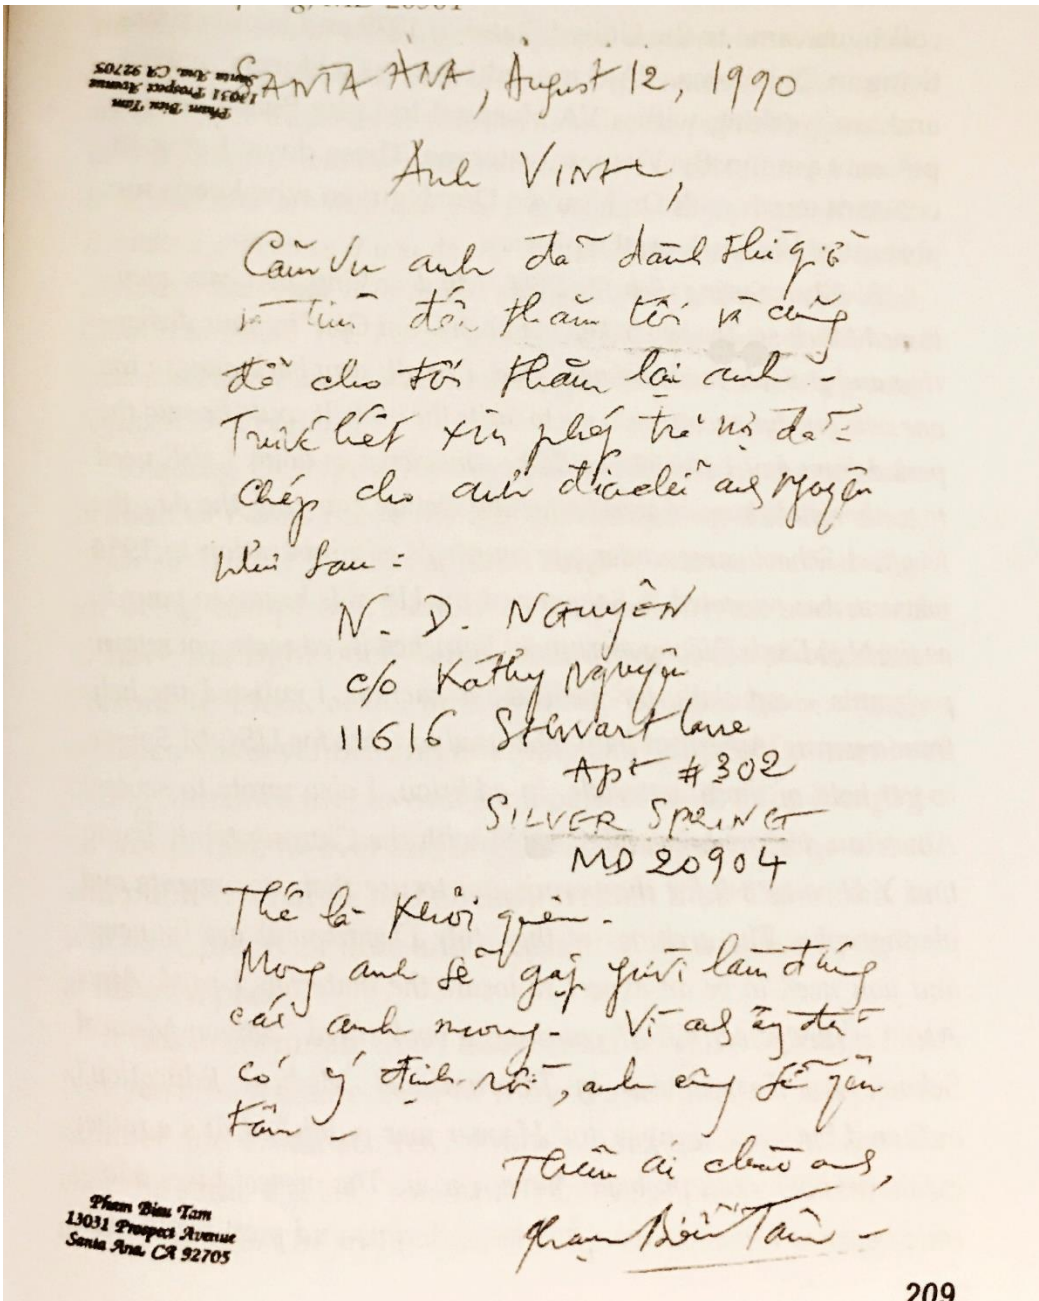 MD 20901
SANTA ANA, August 12, 1990
Pham Bieu Tam
13031 Prospect Avenue
Santa Ana, CA 92705
Anh VINH,
Cảm ơn anh đã dành thì giờ
và tìm đến thăm tôi và cũng
để cho tôi thăm lại anh -
Trước hết xin phép trả nợ đã
chép cho anh địa chỉ anh Nguyên
như sau:
N. D. NGUYÊN
c/o Kathy Nguyên
11616 Stewart Lane
Apt #302
SILVER SPRING
MD 20904
Thế là khỏi quên.
Mong anh sẽ gặp làm đúng
cái anh mong - Vì anh ấy đã
có ý định rồi, anh cũng sẽ yên
tâm
Thân ái chào anh,
Phạm Biểu Tâm
Pham Bieu Tam
13031 Prospect Avenue
Santa Ana, CA 92705
209